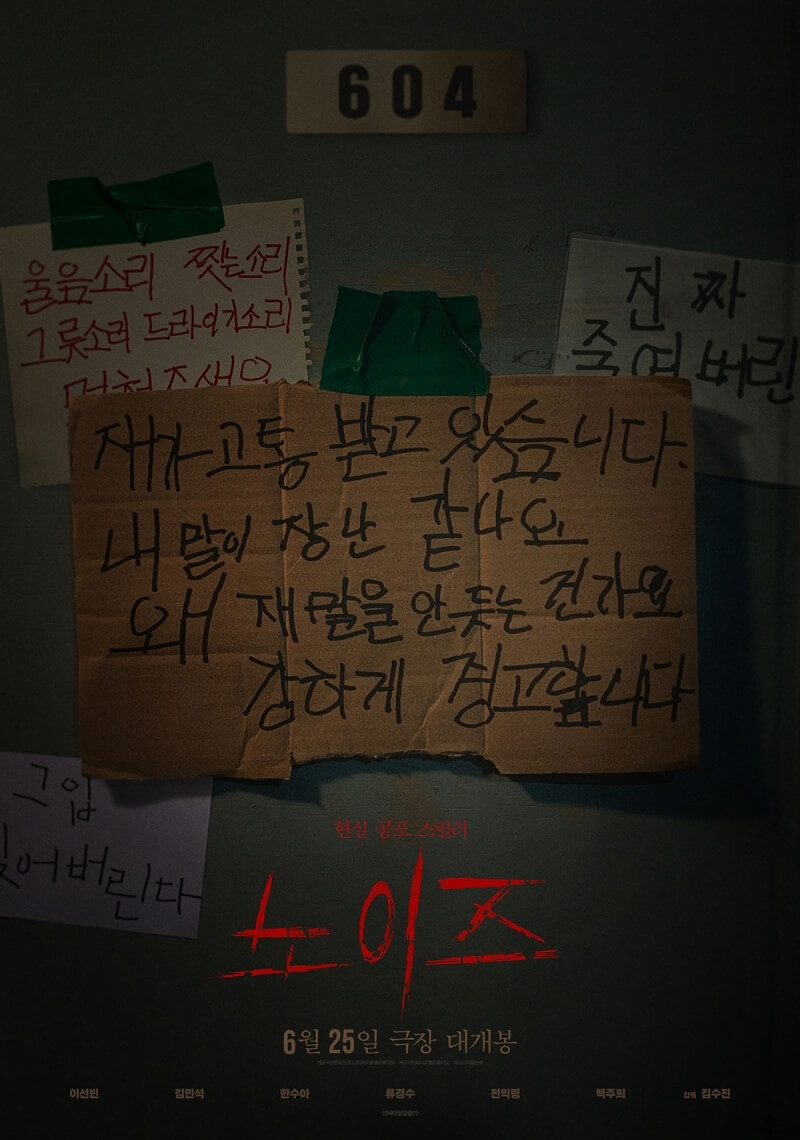 604
울음소리 찢는소리
그릇소리 드라이기소리
멈춰주세요
진짜
죽여버린
재가 고통 받고 있습니다.
내 말이 장난 같나요
왜 재 말을 안듯는 건가요
강하게 경고합니다
그 입
찢어버린다
현실 공포 스릴러
노이즈
6월 25일 극장 대개봉
이선빈 김민석 한수아 류경수 전익령 백주희 감독 김수진